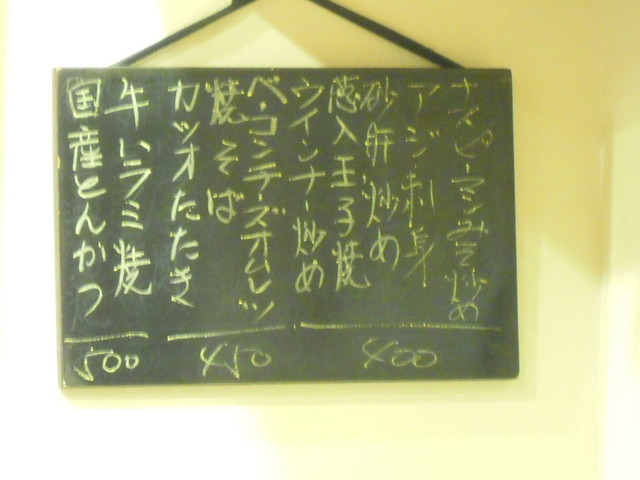 ナスピーマンみそ炒め
アジ刺身
砂肝炒め
葱入玉子焼
ウインナー炒め
ベーコンチーズオムレツ
焼そば
カツオたたき
牛ハラミ焼
国産とんかつ
400
450
500